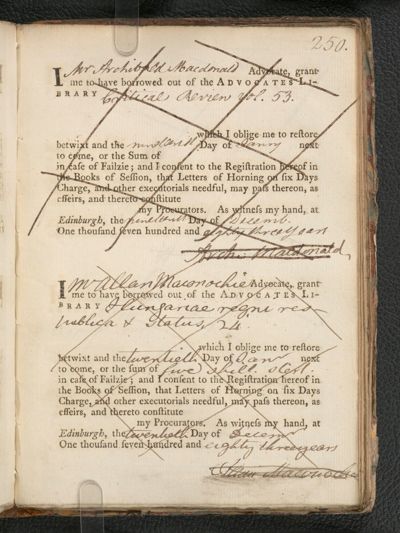 250.
I Mr Archibald Macdonald Advocate, grant
me to have borrowed out of the ADVOCATES LI-
BRARY Critical Review Vol. 53.
which I oblige me to reſtore
betwixt and the Day of Janry next
to come, or the Sum of
in caſe of Failzie; and I conſent to the Regiſtration hereof in
the Books of Seſſion, that Letters of Horning on ſix Days
Charge, and other executorials needful, may paſs thereon, as
effeirs, and thereto conſtitute
my Procurators. As witneſs my hand, at
Edinburgh, the Day of Decemb.
One thouſand ſeven hundred and eighty three years
Archd Macdonald
I Mr Allan Maconochie Advocate, grant
me to have borrowed out of the ADVOCATES LI-
BRARY Hungariae regni res
publica & Status, 24.
which I oblige me to reſtore
betwixt and the twentieth Day of Janr next
to come, or the ſum of five shill. sterl.
in caſe of Failzie; and I conſent to the Regiſtration hereof in
the Books of Seſſion, that Letters of Horning on ſix Days
Charge, and other executorials needful, may paſs thereon, as
effeirs, and thereto conſtitute
my Procurators. As witneſs my hand, at
Edinburgh, the twentieth Day of Decem
One thouſand ſeven hundred and eighty three years
Allan Maconochie